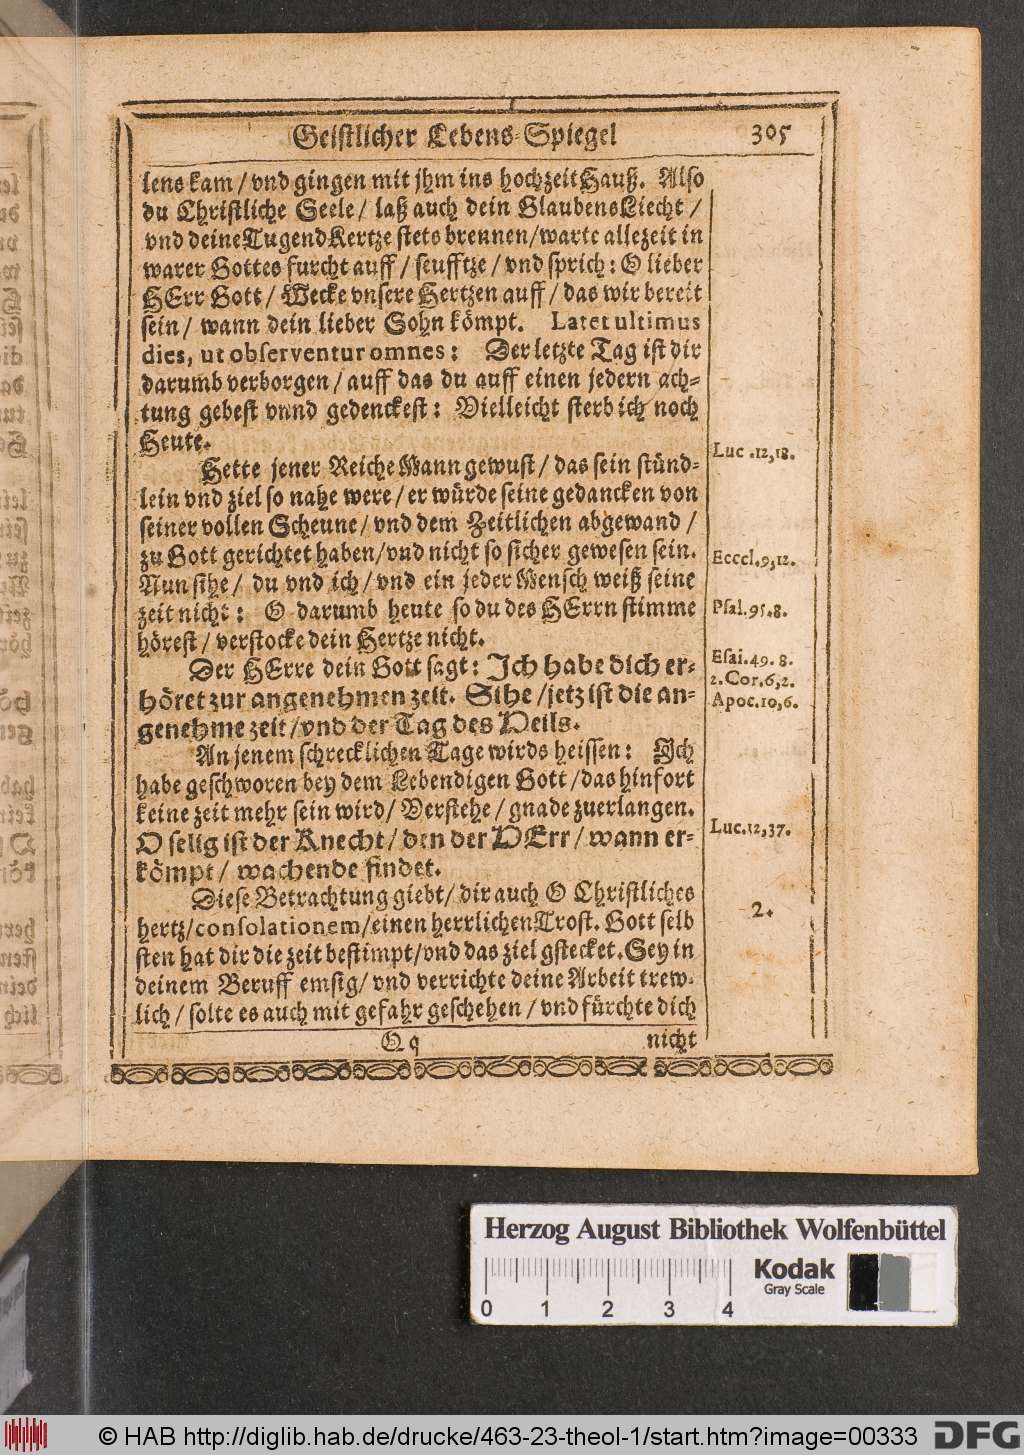 Geistlicher Lebens-Spiegel 305
lens kam / vnd gingen mit jhm ins hochzeit Hauß. Also
du Christliche Seele / laß auch dein Glaubens Liecht /
vnd deine Tugend Kertze stets brennen / warte allezeit in
warer Gottes furcht auff / seufftze / vnd sprich: O lieber
HErr Gott / Wecke vnsere Hertzen auff / das wir bereit
sein / wann dein lieber Sohn kömpt. Latet ultimus
dies, ut observentur omnes: Der letzte Tag ist dir
darumb verborgen / auff das du auff einen jedern ach-
tung gebest vnnd gedenckest: Vielleicht sterb ich noch
Heute.
Hette jener Reiche Mann gewust / das sein stünd-
lein vnd ziel so nahe were / er würde seine gedancken von
seiner vollen Scheune / vnd dem Zeitlichen abgewand /
zu Gott gerichtet haben / vnd nicht so sicher gewesen sein.
Nun sihe / du vnd ich / vnd ein jeder Mensch weiß seine
zeit nicht: O darumb heute so du des HErrn stimme
hörest / verstocke dein Hertze nicht.
Der HErre dein Gott sagt: Ich habe dich er-
höret zur angenehmen zeit. Sihe / jetz ist die an-
genehme zeit / vnd der Tag des Heils.
An jenem schrecklichen Tage wirds heissen: Ich
habe geschworen bey dem Lebendigen Gott / das hinfort
keine zeit mehr sein wird / Verstehe / gnade zuerlangen.
O selig ist der Knecht / den der HErr / wann er-
kömpt / wachende findet.
Diese Betrachtung giebt / dir auch O Christliches
hertz / consolationem / einen herrlichen Trost. Gott selb
sten hat dir die zeit bestimpt / vnd das ziel gstecket. Sey in
deinem Beruff emsig / vnd verrichte deine Arbeit trew-
lich / solte es auch mit gefahr geschehen / vnd fürchte dich
Qq nicht
Luc .12,18.
Ecccl.9,12.
Psal.95.8.
Esai.49. 8.
2.Cor.6,2.
Apoc.10,6.
Luc.12,37.
2.
Herzog August Bibliothek Wolfenbüttel
Kodak
Gray Scale
0 1 2 3 4
© HAB http://diglib.hab.de/drucke/463-23-theol-1/start.htm?image=00333
DFG